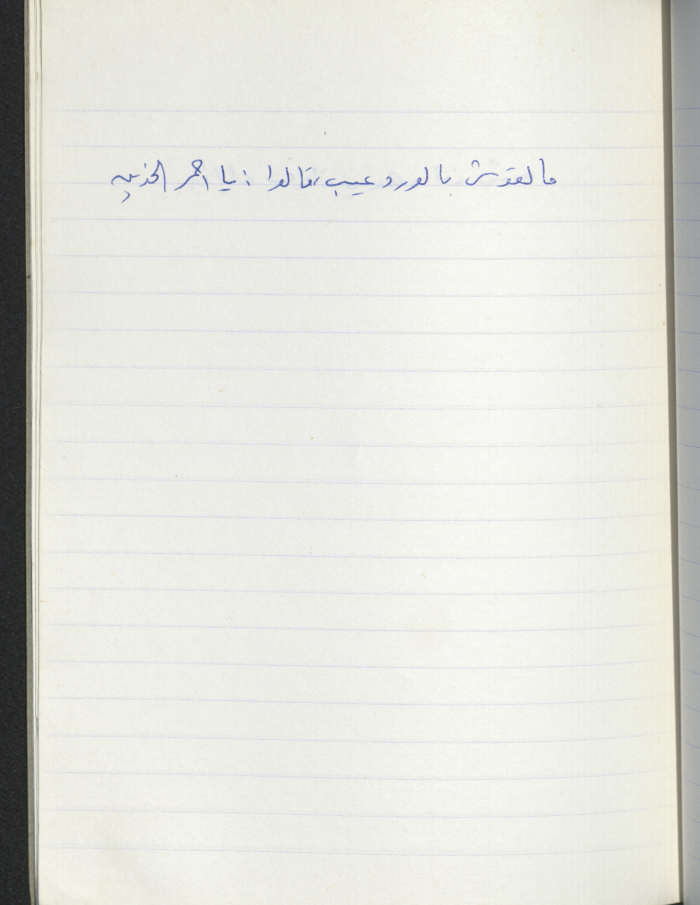 ما لقوش بالورد عيب، قالوا: يا احمر الخدين